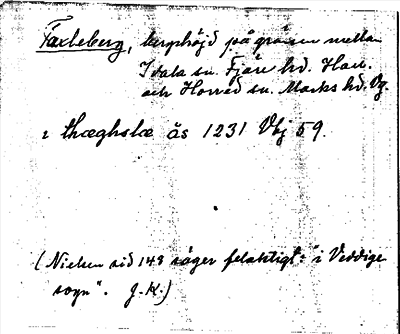 Faxleberg, berghöjd på gränsen mellan
Idala sn. Fjäre hd. Hall.
och Horred sn. Marks hd. Vg.
i thæghslæ ås 1231 Vhj 59.
(Nielsen sid 148 säger felaktigt: "i Veddige
sogn". J.K.)